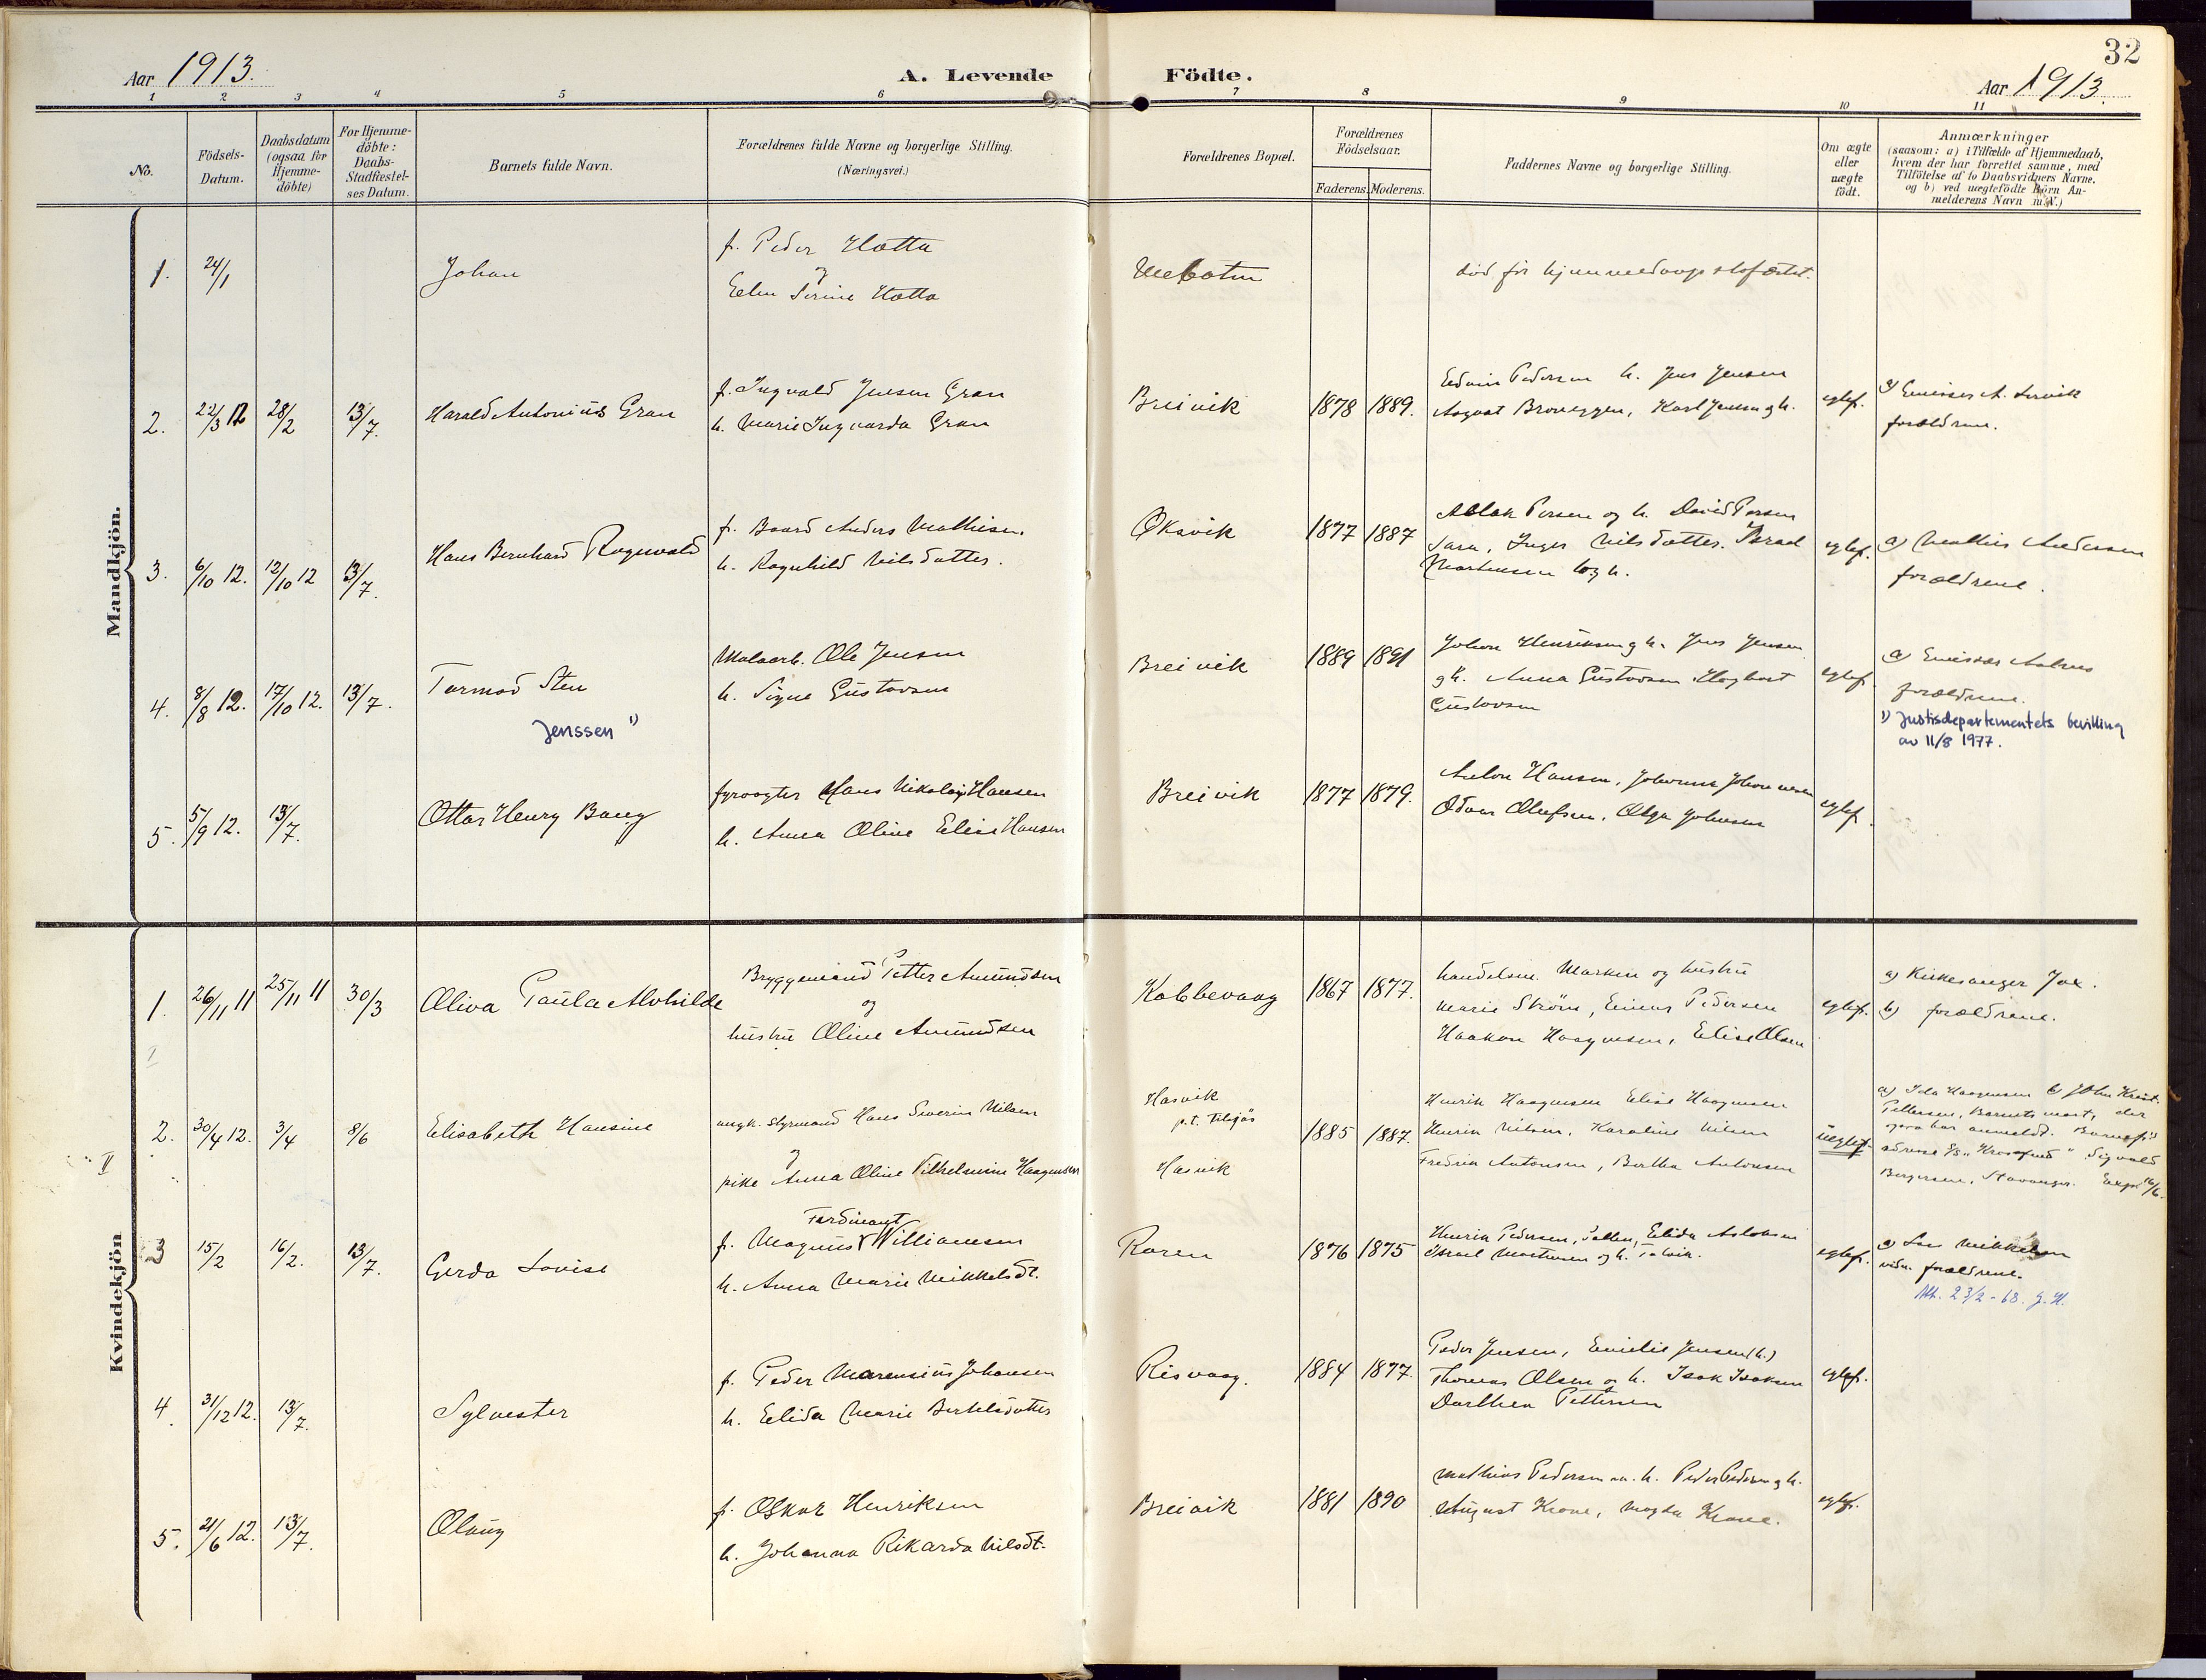 32
Aar 1913.
A. Levende Födte.
Aar 1913.
1 2 3 4 5 6 7 8 9 10 11
No.
Födsels-Datum.
Daabsdatum (ogsaa for Hjemme-döbte)
For Hjemme-döbte: Daabs-Stadfæstel-ses Datum.
Barnets fulde Navn.
Forældrenes fulde Navne og borgerlige Stilling.
(Næringsvei.)
Forældrenes Bopæl.
Forældrenes Födselsaar.
Faderens. Moderens.
Faddernes Navne og borgerlige Stilling.
Om ægte eller uægte födt.
Anmærkninger
(saasom: a) i Tilfælde af Hjemmedaab,
hvem der har forrettet samme, med
Tilföielse af to Daabsvidners Navne,
og b) ved uægtefödte Börn An-
melderens Navn m. V.)
Mandkjön.
1. 24/1 Johan
f. Peder Hætta
og
Elen Serine Hætta
død før hjemmedaap
2. 22/3 12 28/2 13/7. Harald Antonius Gran
f. Ingvald Jensen Gran
h. Marie Ingvarda Gran
Breivik 1878 1889.
Edvin Pedersen h. Jens Jensen
August Karl Jensen og h.
egtef.
forældrene.
3. 6/10 12. 12/10 12 13/7. Hans Bernhard Ragnvald
f. Baard Anders Mathisen.
h. Ragnhild Nilsdatter.
Øksvik 1877 1887
Aslak Persen og h. David Persen
Sara, Inger Nilsdatter. Israel
Martinsen og h.
egtef.
a) Mathis Andersen
forældrene.
4. 8/8 12. 17/10 12. 13/7. Tormod Sten
Jenssen 1)
Malaarb. Ole Jensen
h. Signe Gustavsen
Breivik 1889 1891
Johan Henriksen og h. Jens Jensen
og h. Anna Gustavsen
Gustavsen
egtef.
a) Emissær
forældrene.
1) Justisdepartementets bevilling
av 11/8 1977.
5. 5/9 12. 13/7. Ottar Henry Bang
fyrvogter Hans Nikolay Hansen
h. Anna Oline Elise Hansen
Breivik 1877 1879.
Anton Hansen, Johannes Johannesen
Odvar Olufsen, Olga Johnsen
egtef.
Kvindekjön
1. 26/11 11 25/11 11 30/3 Oliva Paula Alvhilde
Bryggemand Petter Amundsen
og
hustru Oline Amundsen
Kobbevaag 1867 1877.
handelsm. Marken og hustru
Marie Strøm, Einar Pedersen
Haakon Haagensen, Elise Olsen
egtef.
a) Kirkesanger Jax.
b) forældrene.
I
2. 30/4 12. 3/4 8/6 Elisabeth Hansine
ungk. Styrmand Hans Severin Nilsen
og
pike Anna Oline Vilhelmine Haagensen
Hasvik
p.t. tilsjøs
Hasvik
1885 1887.
Henrik Haagensen Elise Haagensen
Henrik Nilsen, Karoline Nilsen
Fredrik Antonsen, Bertha Antonsen
uegtef.
a) Ida Haagensen b) John Krist.
Pettersen, Barnets mor, der
ogsaa har anmeldt. Barnef.s
adresse Sigvald
Bergersen, Stavanger. Exp. 16/6.
II
3 15/2 16/2. 13/7. Gerda Lovise
Ferdinant
f. Magnus Williamsen
h. Anna Marie Mikkelsdt.
1876 1875
Henrik Pedersen, Elida Aslaksen
Israel Martinsen og h. Talvik.
egtef.
a) Lars Mikkelsen
vidn. forældrene.
Att. 23/2-68. G.H.
4. 31/12 12. 13/7. Sylvester
f. Peder Marensius Johansen
h. Elida Marie Bertelsdatter
Risvaag. 1884 1877.
Peder Jensen, Emilie Jensen (h.)
Thomas Olsen og h. Isak Isaksen
Dorthea Pettersen
egtef.
5. 21/6 12. 13/7. Olaug
f. Oskar Henriksen
h. Johanna Rikarda Nilsdt.
Breivik 1881 1890
Mathias Pedersen h. Peder Pedersen og h.
August Krane, Magda Krane.
egtef.